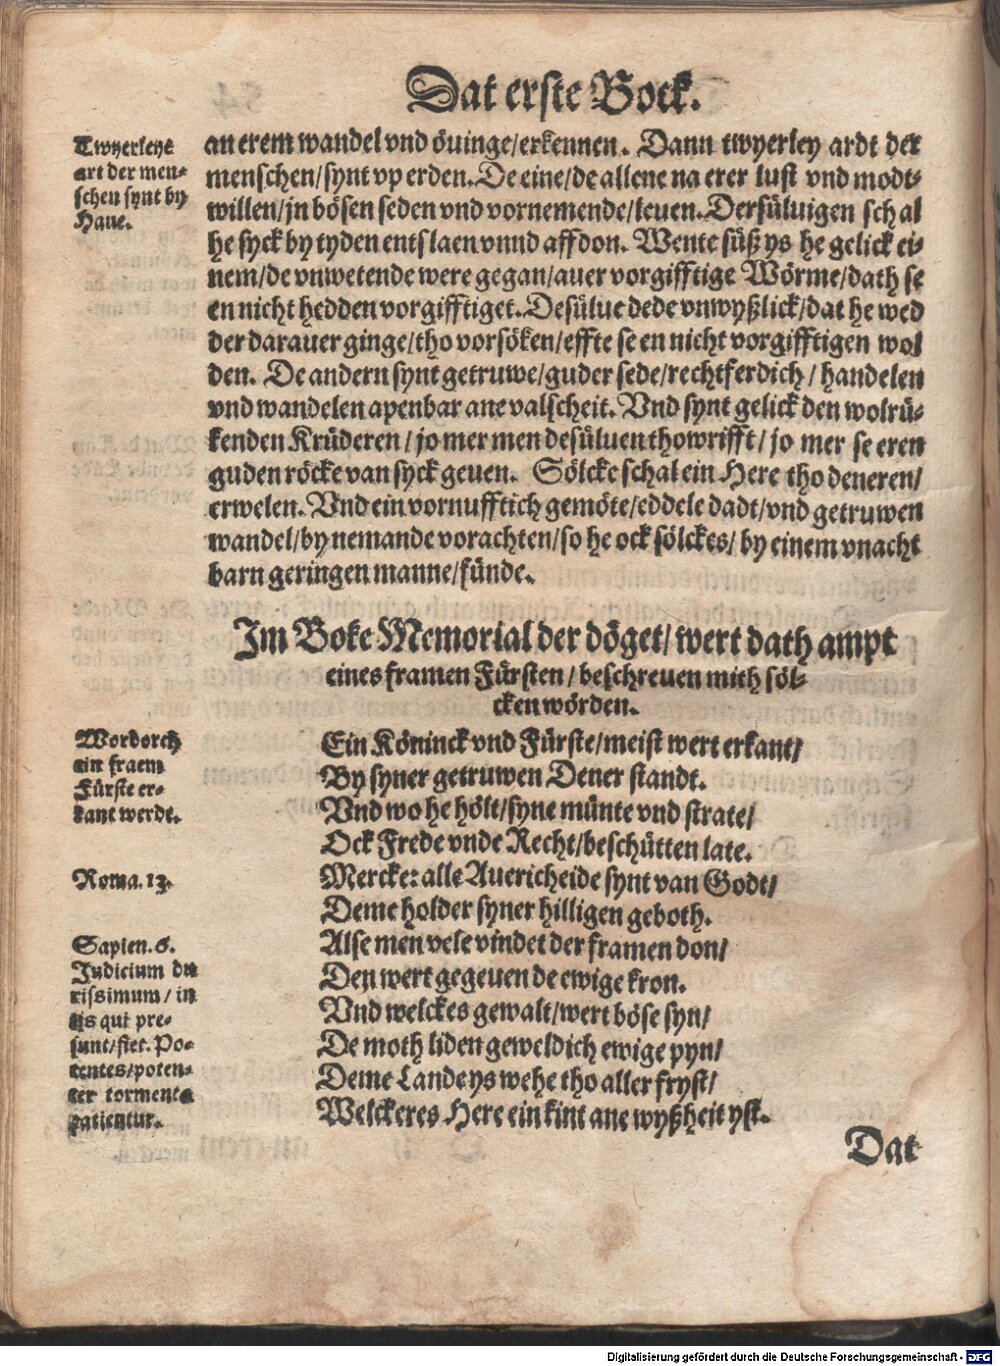 Dat erste Bock.
Twyerleye
art der men-
schen synt by
Haue.
an erem wandel vnd öuinge/erkennen. Dann twyerley ardt der
menschen/synt vp erden. De eine/de allene na erer lust vnd modt-
willen/jn bösen seden vnd vornemende/leuen. Dersüluigen schal
he syck by tyden entslaen vnnd affdon. Wente süß ys he gelick ei-
nem/de vnwetende were gegan/auer vorgifftige Wörme/dath se
en nicht hedden vorgifftiget. Desülue dede vnwyßlick/dat he wed
der darauer ginge/tho vorsöken/effte se en nicht vorgifftigen wol
den. De andern synt getruwe/guder sede/rechtferdich/handelen
vnd wandelen apenbar ane valscheit. Vnd synt gelick den wolrü-
kenden Krüderen/jo mer men desüluen thowrifft/jo mer se eren
guden röcke van syck geuen. Sölcke schal ein Here tho deneren/
erwelen. Vnd ein vornufftich gemöte/eddele dadt/vnd getruwen
wandel/by nemande vorachten/so he ock sölckes/by einem vnacht
barn geringen manne/fünde.
Im Boke Memorial der döget/wert dath ampt
eines framen Fürsten/beschreuen mith söl-
cken wörden.
Wordorch
ein fraem
Fürste er-
kant werdt.
Ein Köninck vnd Fürste/meist wert erkant/
By syner getruwen Dener standt.
Vnd wo he hölt/syne münte vnd strate/
Ock Frede vnde Recht/beschütten late.
Roma. 13.
Mercke: alle Auericheide synt van Godt/
Deme holder syner hilligen geboth.
Sapien. 6.
Judicium du
rissimum/in
iis qui pre-
sunt/fiet. Po-
tentes/poten-
ter tormenta
patientur.
Alse men vele vindet der framen don/
Den wert gegeuen de ewige kron.
Vnd welckes gewalt/wert böse syn/
De moth liden geweldich ewige pyn/
Deme Lande ys wehe tho aller fryst/
Welckeres Here ein kint ane wyßheit yst.
Dat
Digitalisierung gefördert durch die Deutsche Forschungsgemeinschaft - DFG